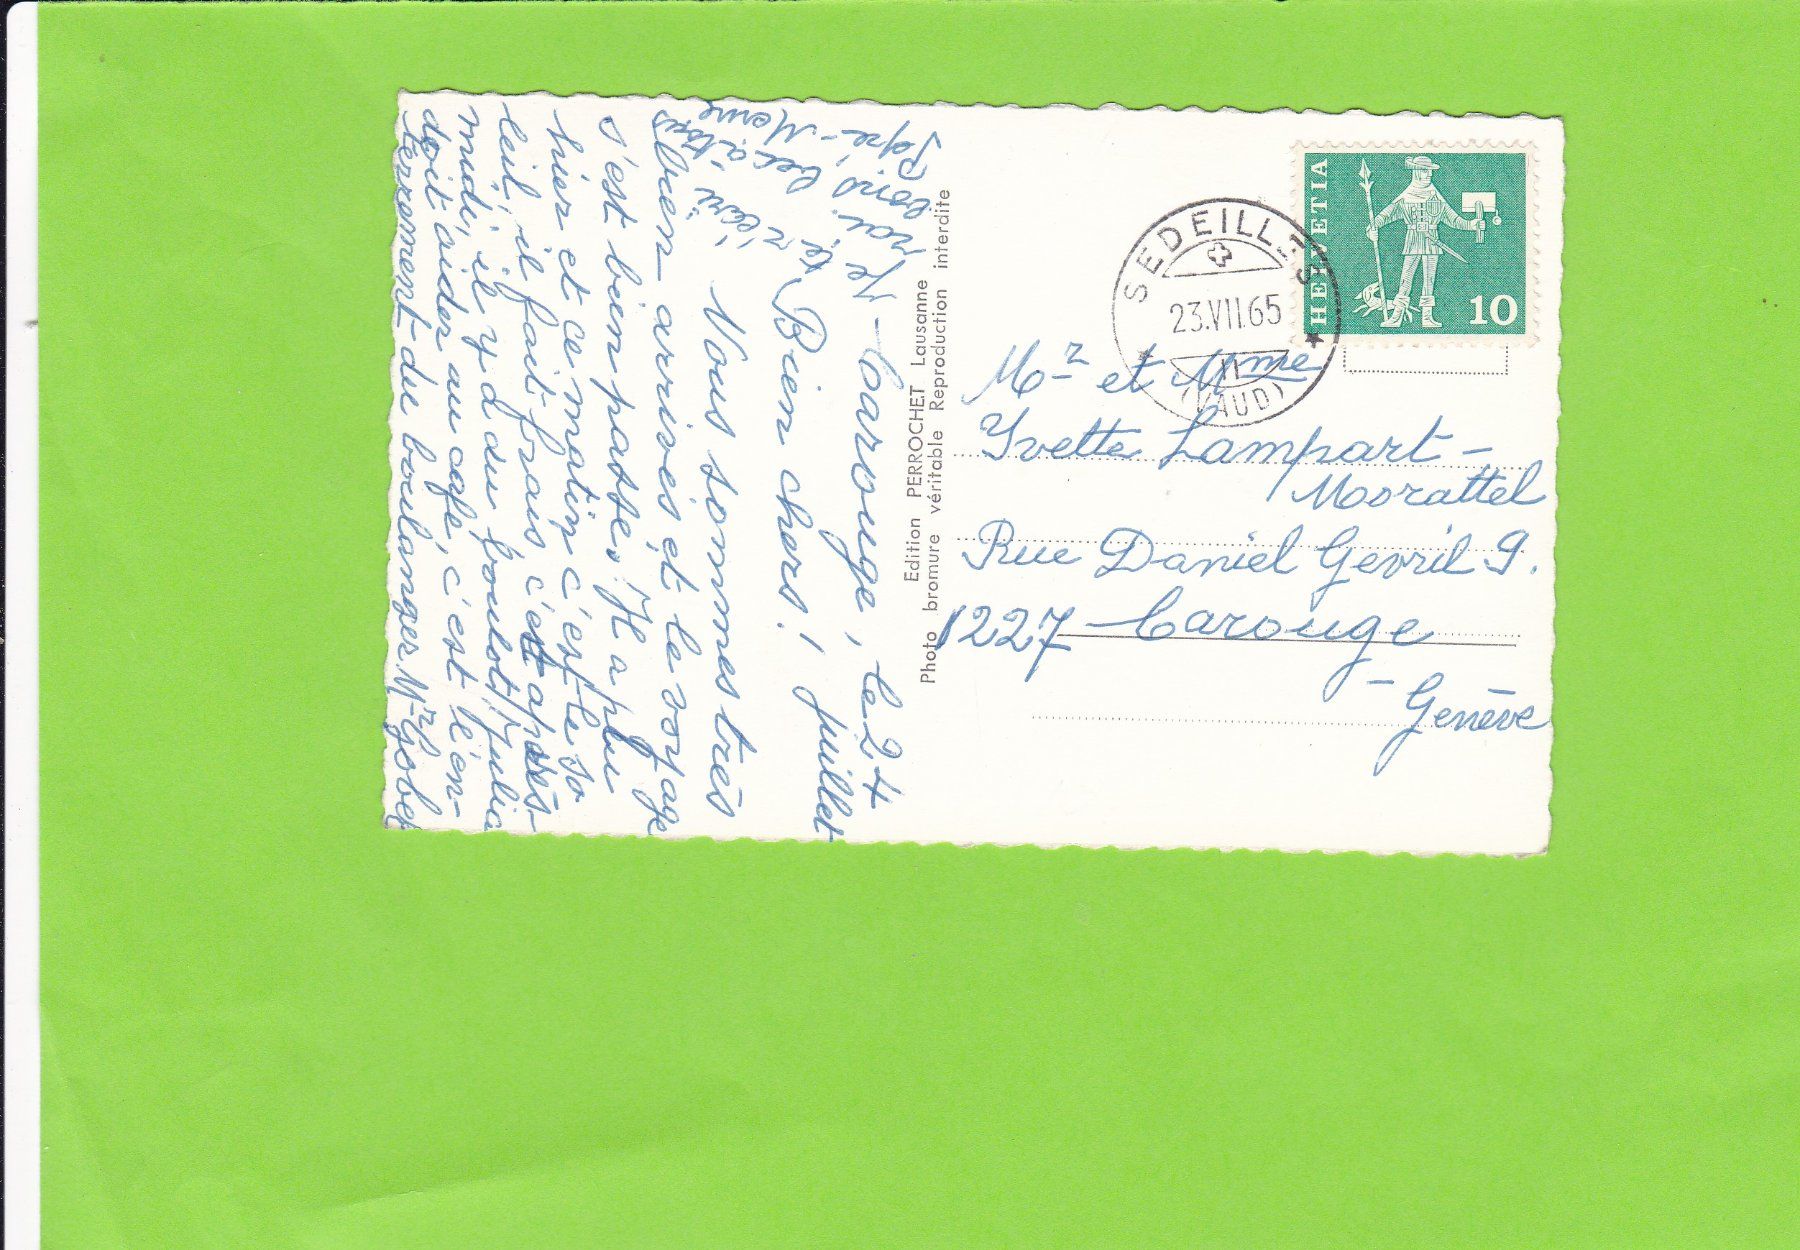 Carouge, le 24
juillet
Bien chers!
Nous sommes très
bien arrivés et le voyage
s'est bien passé, Il a plu
hier et ce matin c'est le so-
leil, il fait frais, c'est après-
midi, il y a du boulot, Julia
doit aider au café, c'est l'en-
terrement du boulanger Mr Gobet
Je te r'écri-
rai.
Bons becs à tous
Pépé-Mémé
Edition PERROCHET Lausanne
Photo bromure véritable Reproduction interdite
HELVETIA
10
SEDEILLES
23.VII.65
(VAUD)
Mr et Mme
Yvette Lampart-
Morattel
Rue Daniel Gevril 9.
1227 Carouge
-Genève